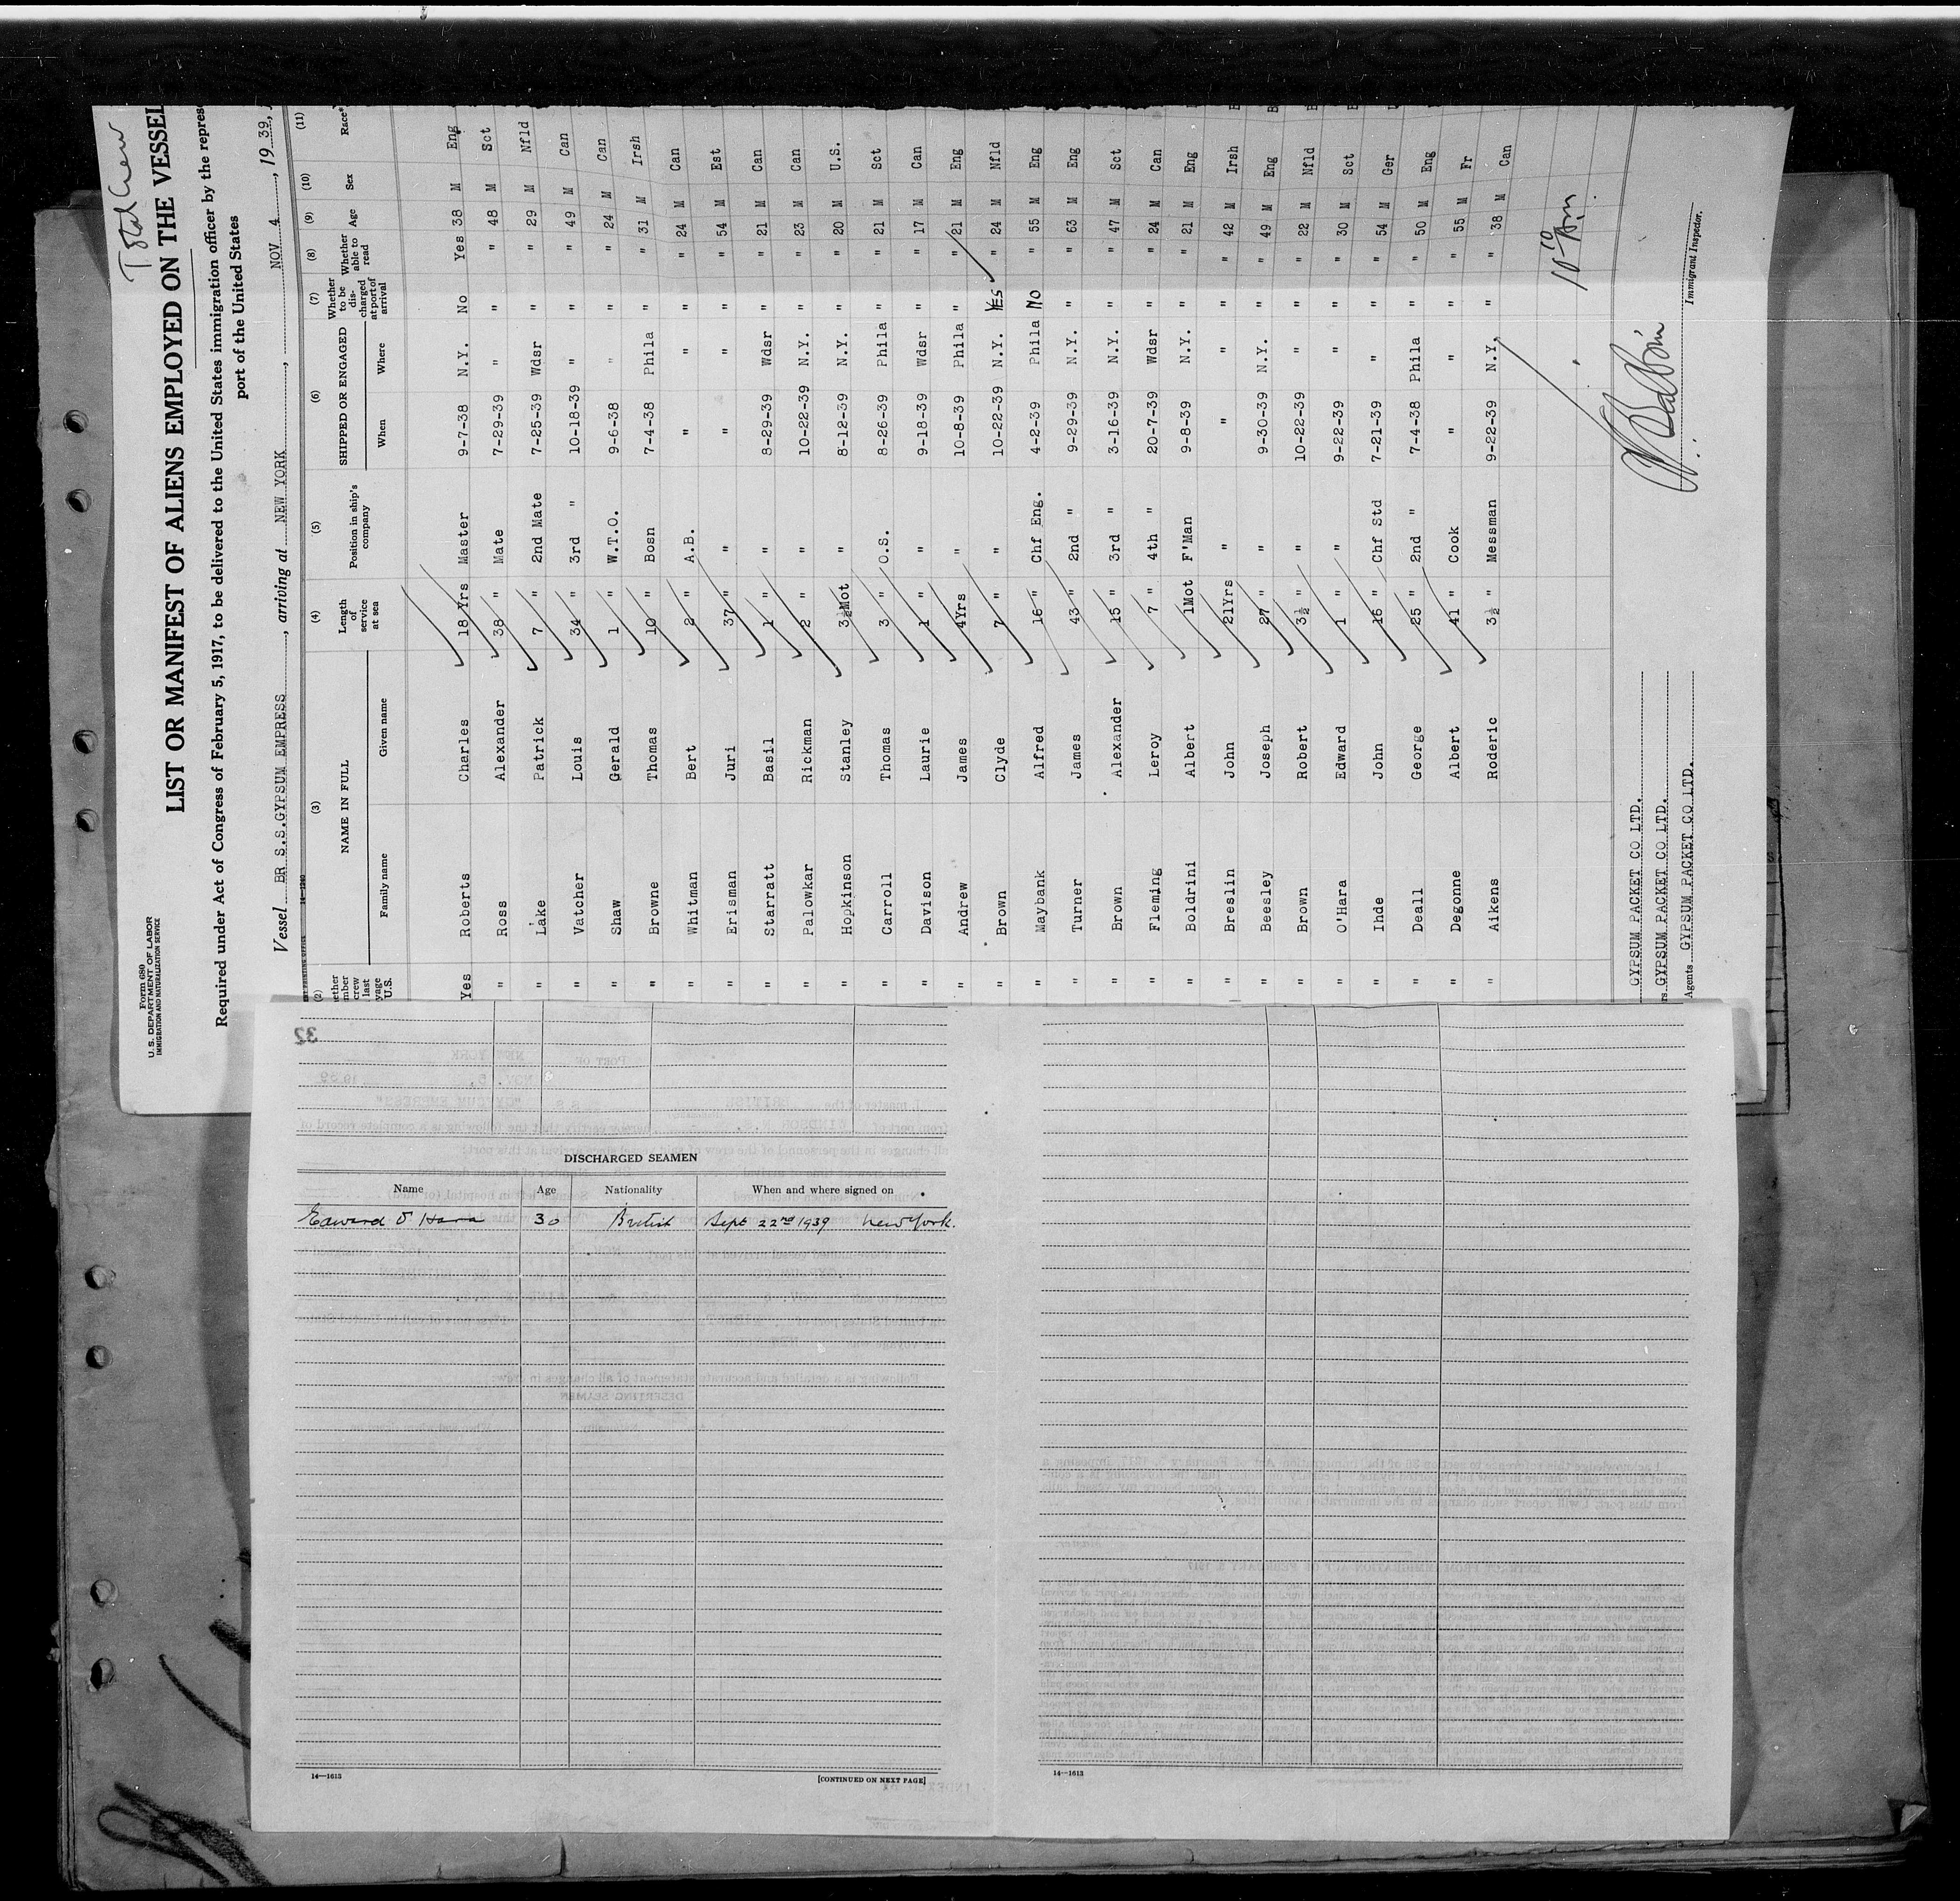 Total Crew
Form 680
U. S. DEPARTMENT OF LABOR
IMMIGRATION AND NATURALIZATION SERVICE
LIST OR MANIFEST OF ALIENS EMPLOYED ON THE VESSEL
Required under Act of Congress of February 5, 1917, to be delivered to the United States immigration officer by the repres
port of the United States
Vessel BR S.S.GYPSUM EMPRESS, arriving at NEW YORK, NOV 4, 19 39,
14-1240
(2) (3) (4) (5) (6) (7) (8) (9) (10) (11)
NAME IN FULL Length of service at sea Position in ship's company SHIPPED OR ENGAGED Whether to be discharged at port of arrival Whether able to read Age Sex Race*
Family name Given name When Where
Yes Roberts Charles 18 Yrs Master 9-7-38 N.Y. No Yes 38 M Eng
" Ross Alexander 38 " Mate 7-29-39 " " " 48 M Sct
" Lake Patrick 7 " 2nd Mate 7-25-39 Wdsr " " 29 M Nfld
" Vatcher Louis 34 " 3rd " 10-18-39 " " " 49 M Can
" Shaw Gerald 1 " W.T.O. 9-6-38 " " " 24 M Can
" Browne Thomas 10 " Bosn 7-4-38 Phila " " 31 M Irsh
" Whitman Bert 2 " A.B. " " " " 24 M Can
" Erisman Juri 37 " " " " " " 54 M Est
" Starratt Basil 1 " " 8-29-39 Wdsr " " 21 M Can
" Palowkar Rickman 2 " " 10-22-39 N.Y. " " 23 M Can
" Hopkinson Stanley 3½Mot " 8-12-39 N.Y. " " 20 M U.S.
" Carroll Thomas 3 " O.S. 8-26-39 Phila " " 21 M Sct
" Davison Laurie 1 " " 9-18-39 Wdsr " " 17 M Can
" Andrew James 4Yrs " 10-8-39 Phila " " 21 M Eng
" Brown Clyde 7 " " 10-22-39 N.Y. Yes " 24 M Nfld
" Maybank Alfred 16 " Chf Eng. 4-2-39 Phila No " 55 M Eng
" Turner James 43 " 2nd " 9-29-39 N.Y. " " 63 M Eng
" Brown Alexander 15 " 3rd " 3-16-39 N.Y. " " 47 M Sct
" Fleming Leroy 7 " 4th " 20-7-39 Wdsr " " 24 M Can
" Boldrini Albert 1Mot F'Man 9-8-39 N.Y. " " 21 M Eng
" Breslin John 21Yrs " " " " " 42 M Irsh
" Beesley Joseph 27 " " 9-30-39 N.Y. " " 49 M Eng
" Brown Robert 3½ " " 10-22-39 " " " 22 M Nfld
" O'Hara Edward 1 " " 9-22-39 " " " 30 M Sct
" Ihde John 16 " Chf Std 7-21-39 " " " 54 M Ger
" Deall George 25 " 2nd " 7-4-38 Phila " " 50 M Eng
" Degonne Albert 41 " Cook " " " " 55 M Fr
" Aikens Roderic 3½ " Messman 9-22-39 N.Y. " " 38 M Can
GYPSUM PACKET CO LTD.
rs GYPSUM PACKET CO LTD.
Agents GYPSUM PACKET CO LTD.
Immigrant Inspector.
32
DISCHARGED SEAMEN
Name Age Nationality When and where signed on
Edward O Hara 30 British Sept 22nd 1939 New York.
14—1613
[CONTINUED ON NEXT PAGE]
14—1613